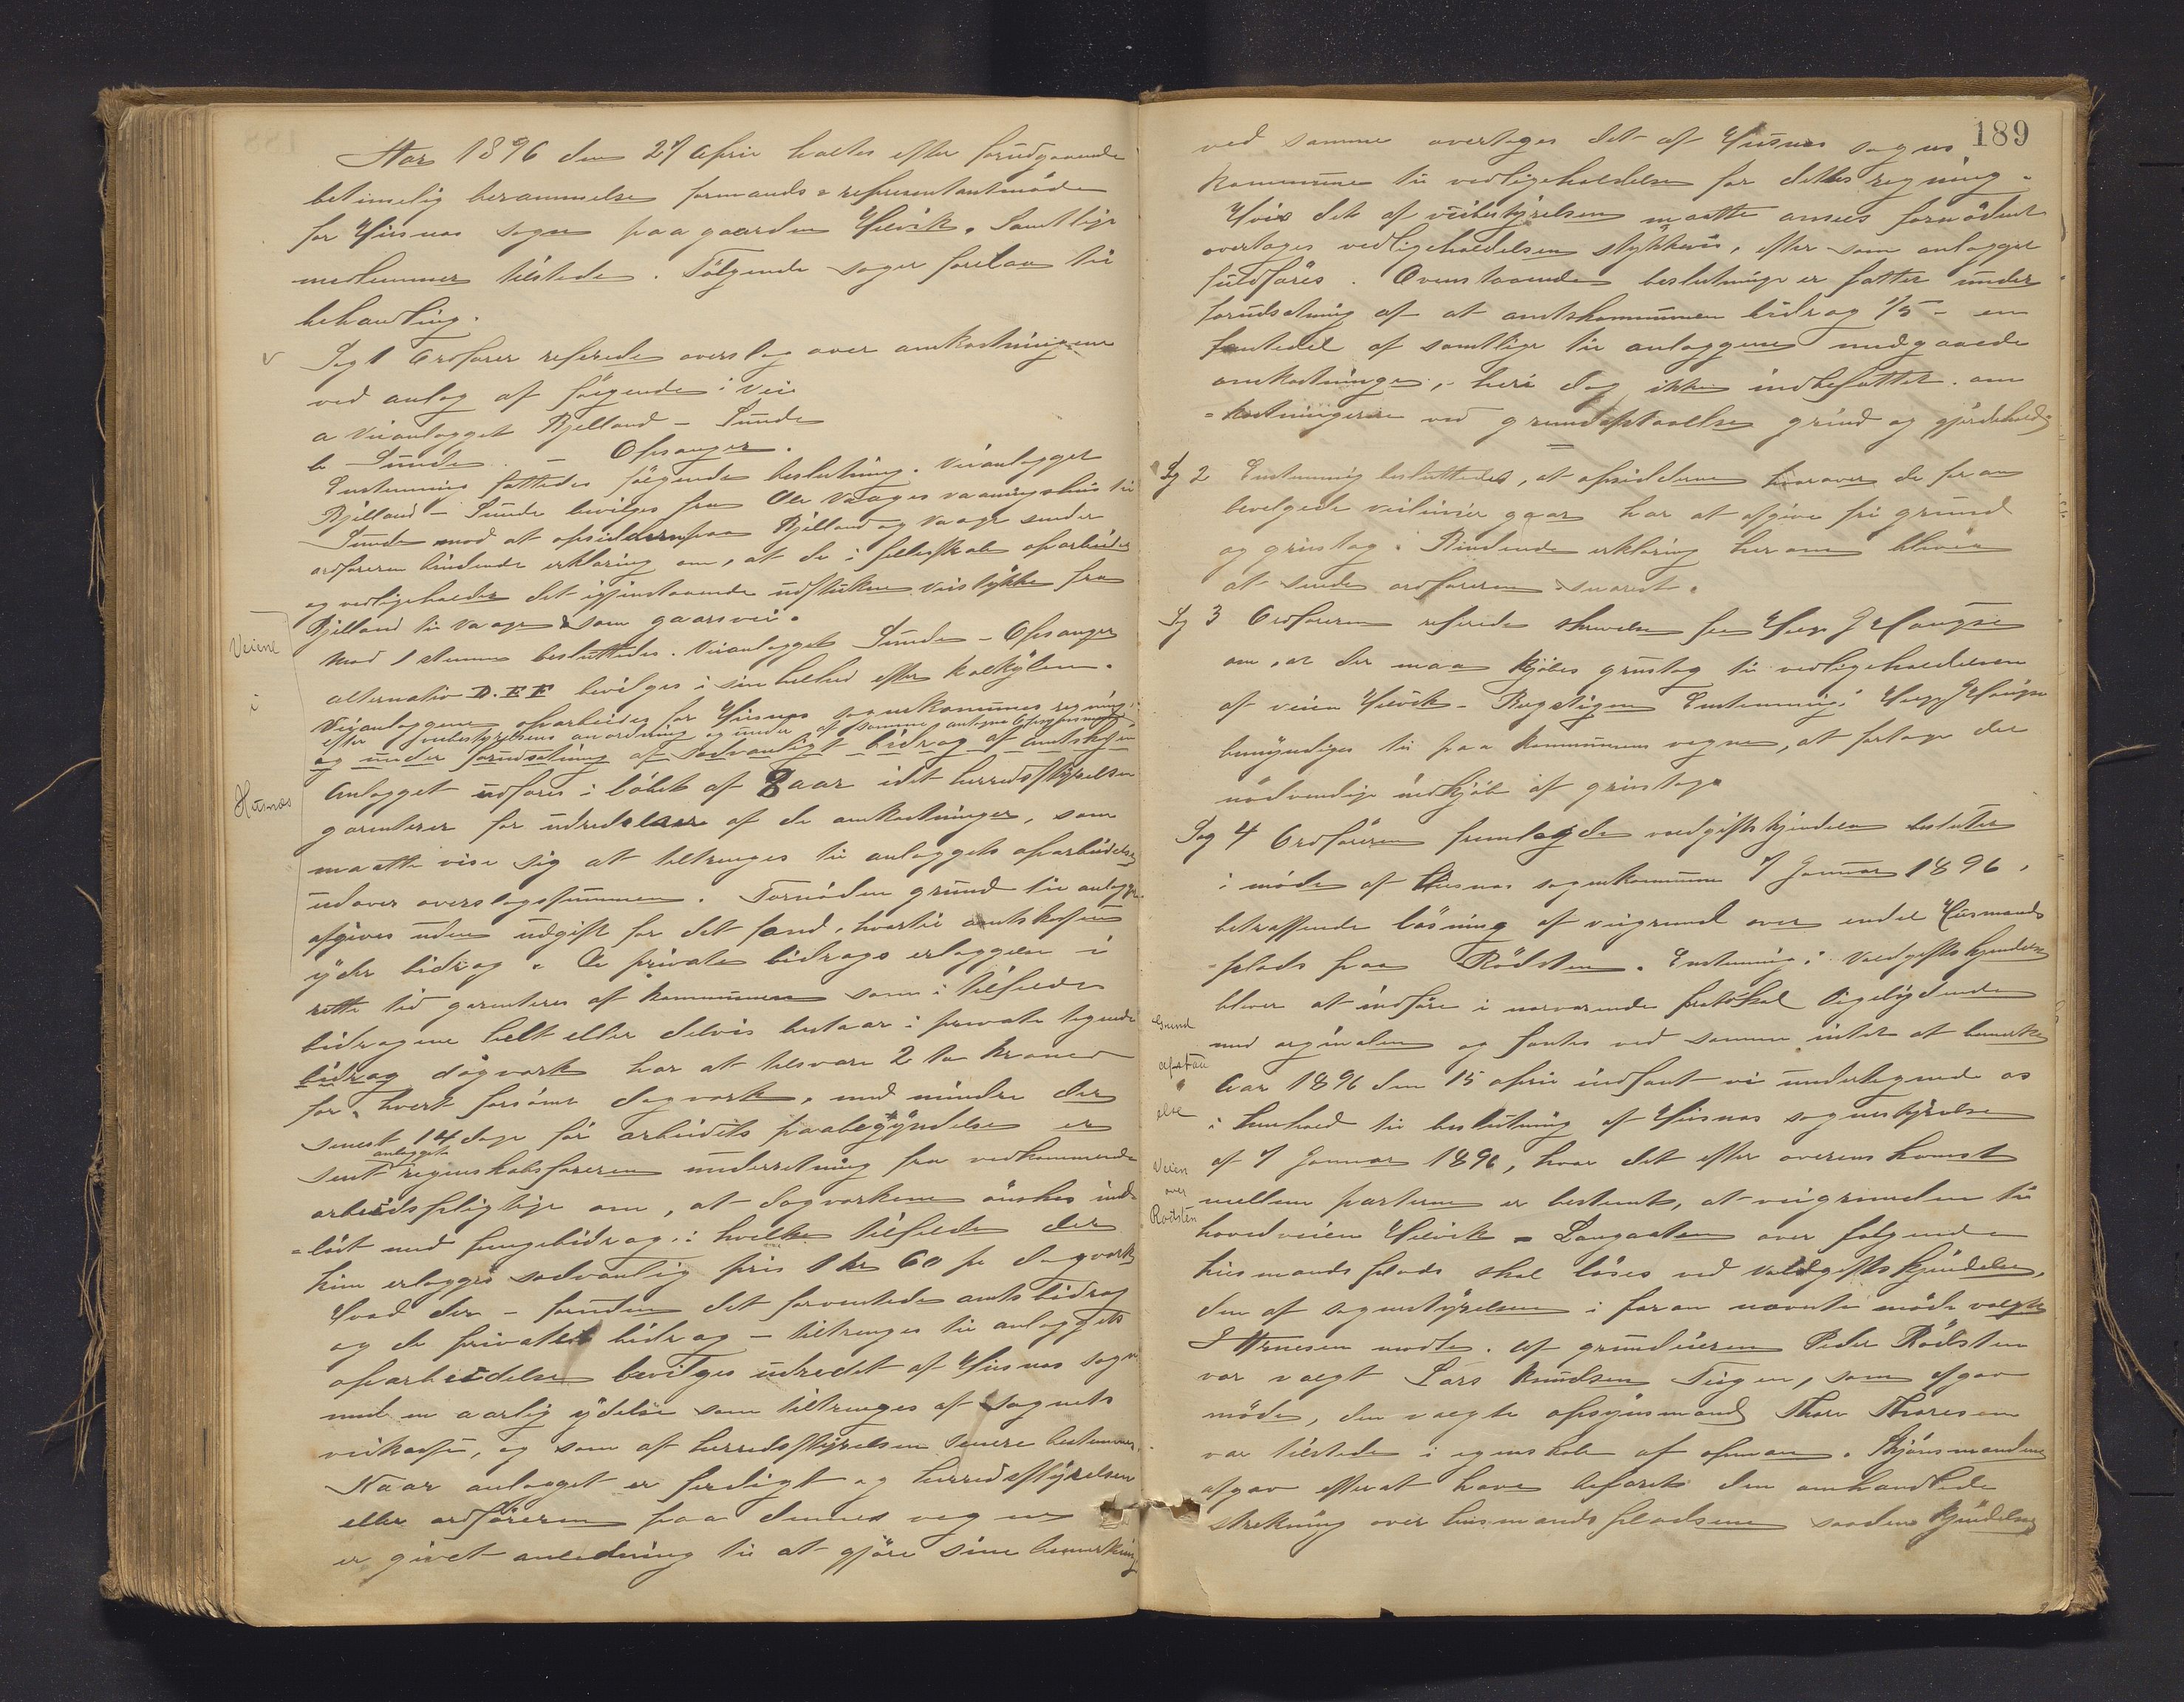 Aar 1896 den 27 April holtes efter forudgaaende
betimelig berammelse formands & representantmøde
for Husnes sogn paa gaarden Helvik. Samtlige
medlemmer tilstede. Følgende sager forelaa til
behandling.
Sag 1 Ordfører refererede overslag over omkostningerne
ved anlæg af følgende: Vei
a Veianlægget Bjelland - Sunde
b Sunde - Opsanger.
Enstemmig fattedes følgende beslutning. Veianlægget
Bjelland - Sunde bevilges fra Ole Vaages vaaningshus til
Sunde mod at opsidderne paa Bjelland og Vaage sender
ordføreren bindende erklæring om, at de i fellesskab oparbeider
og vedligeholder det igjenstaaende udstukne veistykke fra
Bjelland til Vaage som gaarsvei.
Mod 1 stemme besluttedes. Veianlægget Sunde - Opsanger
alternativ D.E.F bevilges i sin helhed efter kalkylen.
Veianlæggene oparbeides for Husnes sognekommunes regning
efter veibestyrelsens anordning og under af samme antagne
og under forudsætning af sædvanligt bidrag af amtskassen
Anlægget udføres i løbet af 8 aar idet herredsstyrelsen
garenterer for udredelser af de omkostninger, som
maatte vise sig at tiltrenges til anlæggets oparbeidelse
udover overslagssummen. Fornøden grund til anlægget
afgives uden udgift for det fond, hvortil amtskassen
yder bidrag. De private bidrags erlæggelse i
rette tid garenteres af kommunen som i tilfelde
bidragene helt eller delvis bestaar i private tegnede
bidrag dagverk har at tilsvare 2 to kroner
for hvert forsømt dagverk, med mindre der
senest 14 dage før arbeidets paabegyndelse er
anlæggets
sent regnskabsføreren underretning fra vedkommende
arbeidspligtige om, at dagverkene ønskes ind-
løst med pengebidrag, i hvilket tilfelde der
kun erlægges sædvanlig pris 1 kr 60 pr dagverk
Hvad der - foruden det forventede amtsbidrag
og de private bidrag - tiltrenges til anlæggets
oparbeidelse bevilges udredet af Husnes sogn
med en aarlig ydelse som tiltrenges af sognets
veikasse, og som af herredsstyrelsen senere bestemmes.
Naar anlægget er ferdigt og herredsstyrelsen
eller ordføreren paa dennes vegne
er givet anledning til at gjøre sine bemerkning
Veiene
i
Husnæs
189
ved samme overtages det af Husnes sogns
kommune til vedligeholdelse for dettes regning.
Hvis det af veibestyrelsen maatte ansees fornødent
overtages vedligeholdelsen stykkevis, efter som anlægget
fuldføres. Ovenstaaende beslutninge er fattet under
forudsætning af at amtskommunen bidrag 1/5 - en
femtedel af samtlige til anlæggene medgaaede
omkostninger, heri dog ikke indbefattet om
=kostningerne ved grundafstaaelse grind og gjerdehold
Sg 2 Enstemmig besluttedes, at opsidderne hvorover de foran
bevilgede veilinier gaar har at afgive fri grund
og grustag. Bindende erklæring herom bliver
at sende ordføreren snarest.
Sg 3 Ordføreren refererede skrivelse fra
om, at der maa kjøbes grustag til vedligeholdelsen
af veien Helvik - Enstemmig:
bemyndiges til paa kommunens vegne, at foretage det
nødvendige indkjøb af grustag
Sag 4 Ordføreren fremlagde voldgiftskjendelse besluttet
i møde af Husnes sognekommune 7 Januar 1896,
betreffende løsning af veigrund over endel Husmands
plads paa Rødsten. Enstemmig: Voldgiftskjendelse
bliver at indføre i nærværende protokol ligelydende
med orginalen og fantes ved samme intet at bemerke
Aar 1896 den 15 april indfant vi undertegnede os
i henhold til beslutning af Husnes sognestyrelse
af 7 Januar 1896, hvor det efter overenskomst
mellem parterne er bestemt, at veigrunden til
hovedveien Helvik - Langaaten over følgende
husmandsplads skal løses ved voldgiftskjendelse,
den af sognestyrelsen i foran nævnte møde valgte
modte. Af grundeieren Peder Rødsten
var valgt Lars Knudsen Teigen, som afgav
møde, den valgte opsynsmand Thore Thoresen
var tilstede i egenskab af opman. Skjønsmandene
afgav efterat have befaret den omhandlede
strekning over husmandspladsene saadan kjendelse
Grund
afstaa
else
Veien
over
Rødsten